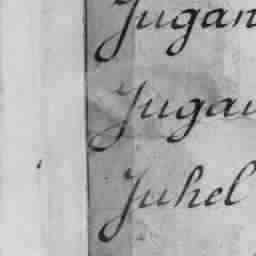 Jugan
Jugau
Juhel